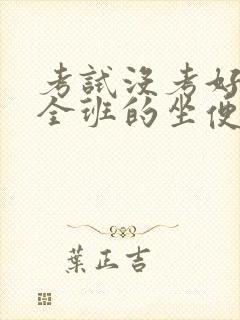 考試沒考好
全班的坐便
葉正吉